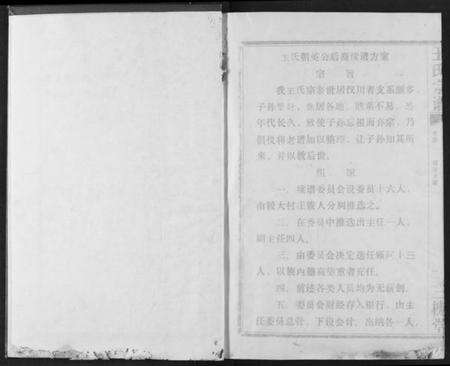 王氏朝英公后裔续谱方案
宗旨
我王氏宗老世居汉川者支系颇多，
子孙繁衍，散居各地，联系不易，恐
年代长久，致使子孙忘祖而弃宗，乃
倡议将老谱加以修理，让子孙知其所
来，并以教后世。
组
一、续谱委员会设委员十六人，
由较大村庄族人分别推选之。
二、在委员中推选出主任一人，
副主任四人。
三、由委员会决定选任顾问十三
人，以族内德高望重者充任。
四、前述各类人员均为无薪制。
五、委员会财经存入银行，由主
任委员总管，下设会计、出纳各一人，